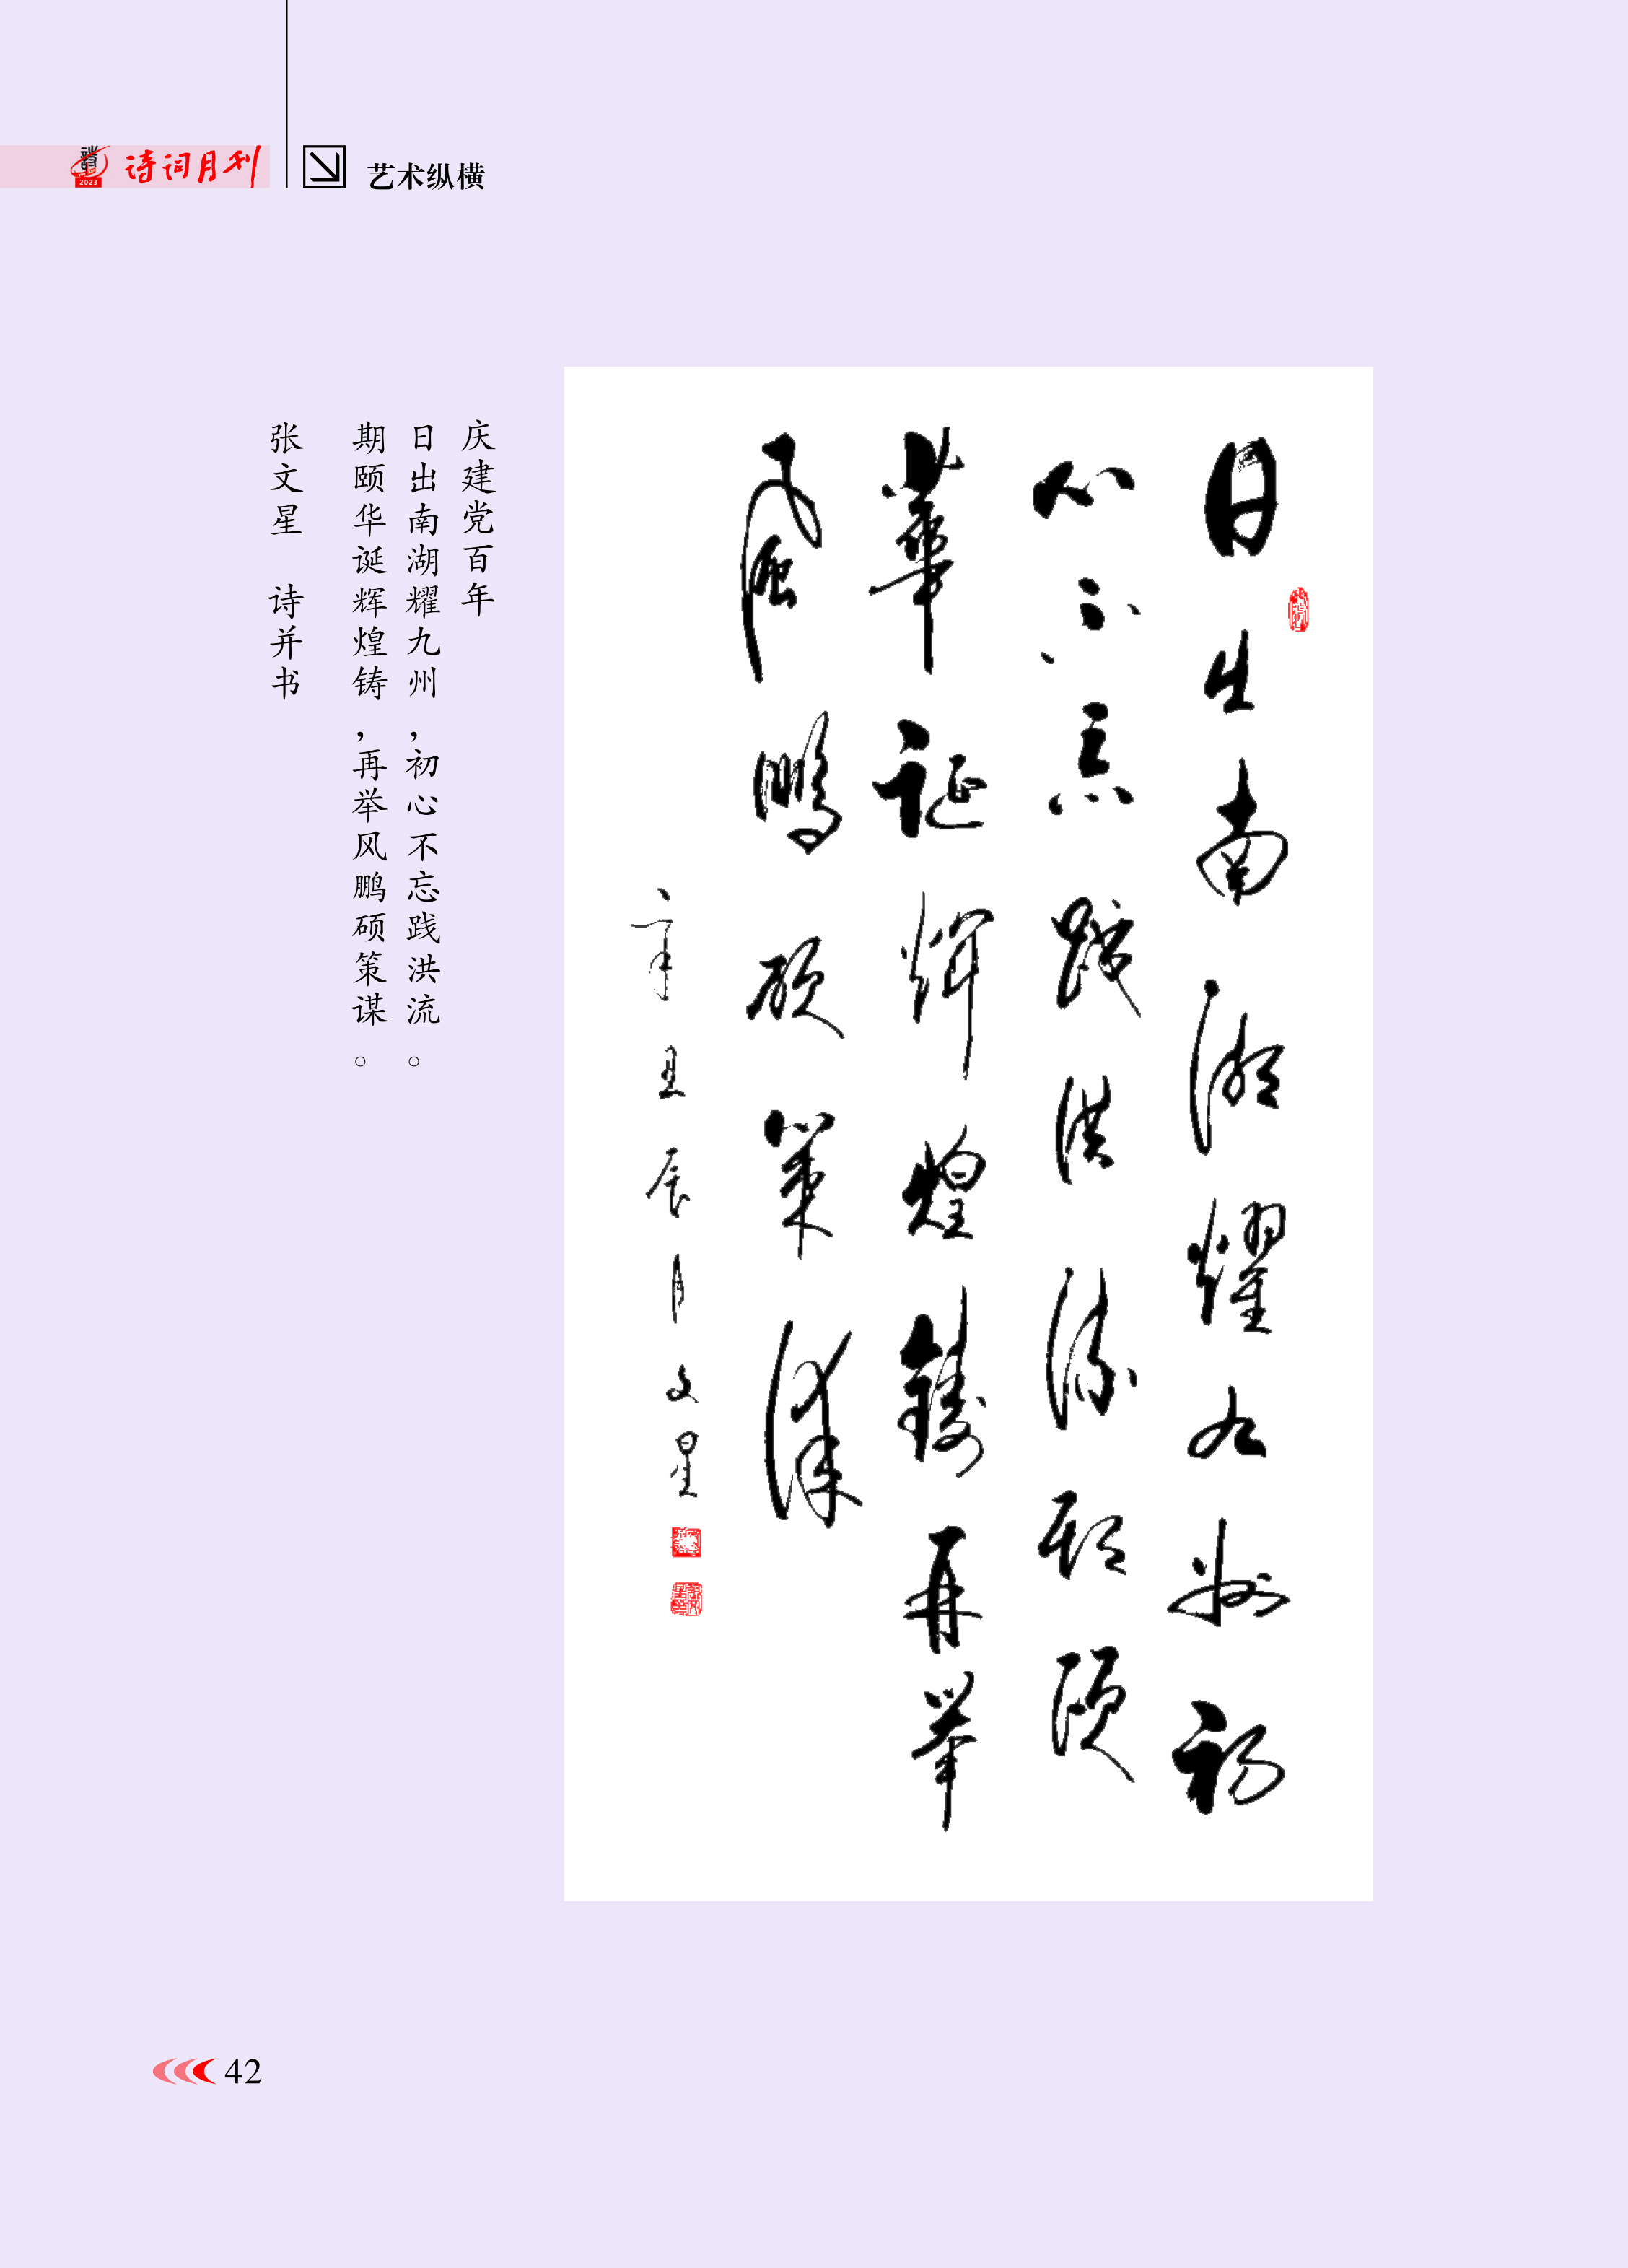 诗词月刊
2023
艺术纵横
庆建党百年
日出南湖耀九州,初心不忘践洪流。
期颐华诞辉煌铸,再举风鹏硕策谋。
张文星 诗并书
日出南湖耀九州初
心不忘践洪流期颐
華诞辉煌鑄再举
風鹏硕策谋
辛丑辰月文星
42